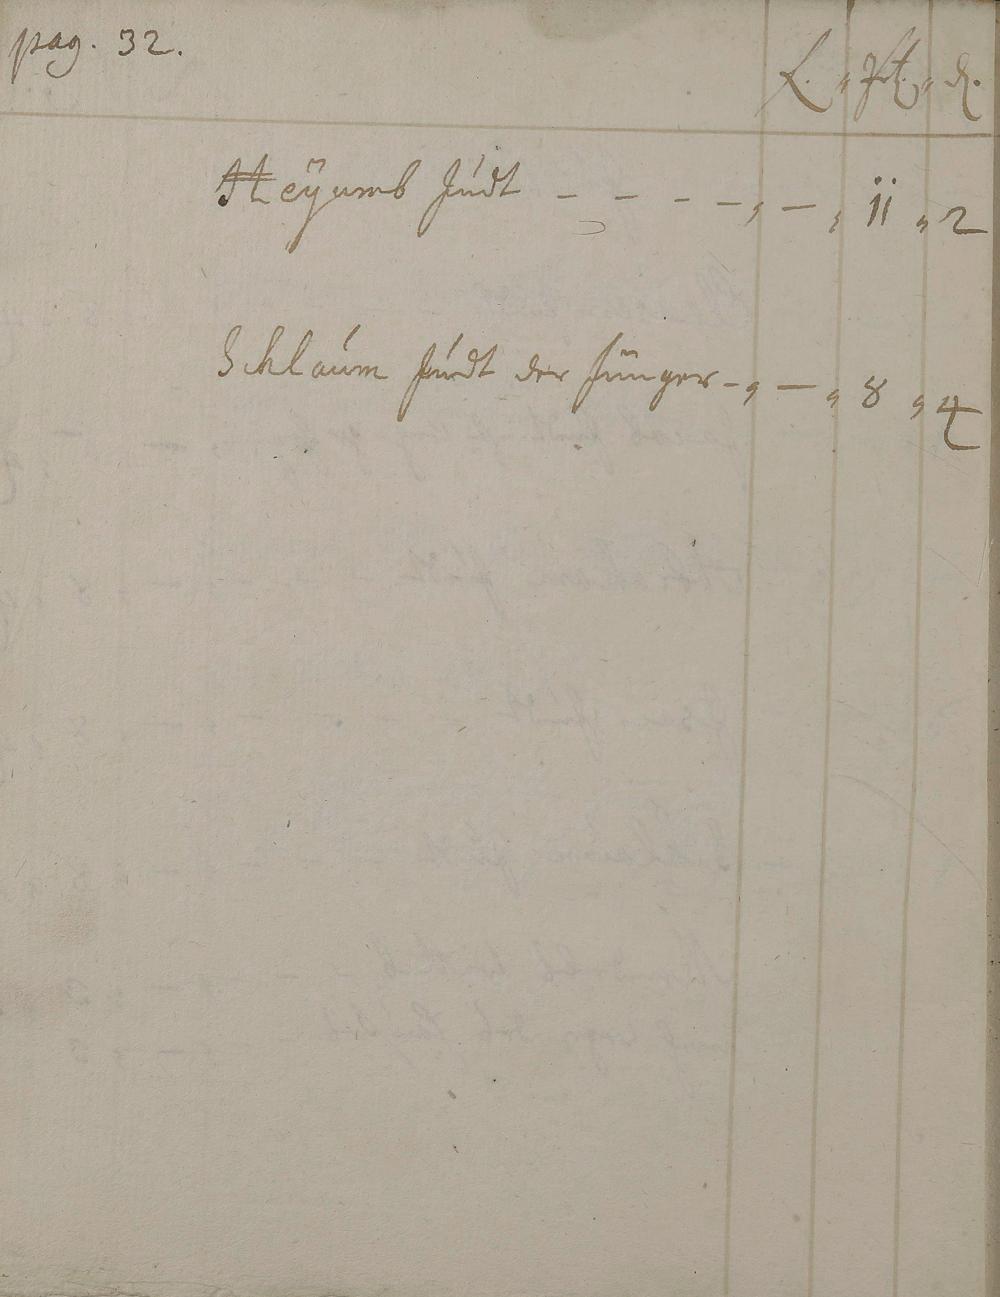 pag. 32.
Heÿumb Júdt – – – –, –, ii, 2
Schlaúm Júdt der Jünger –, –, 8, 4